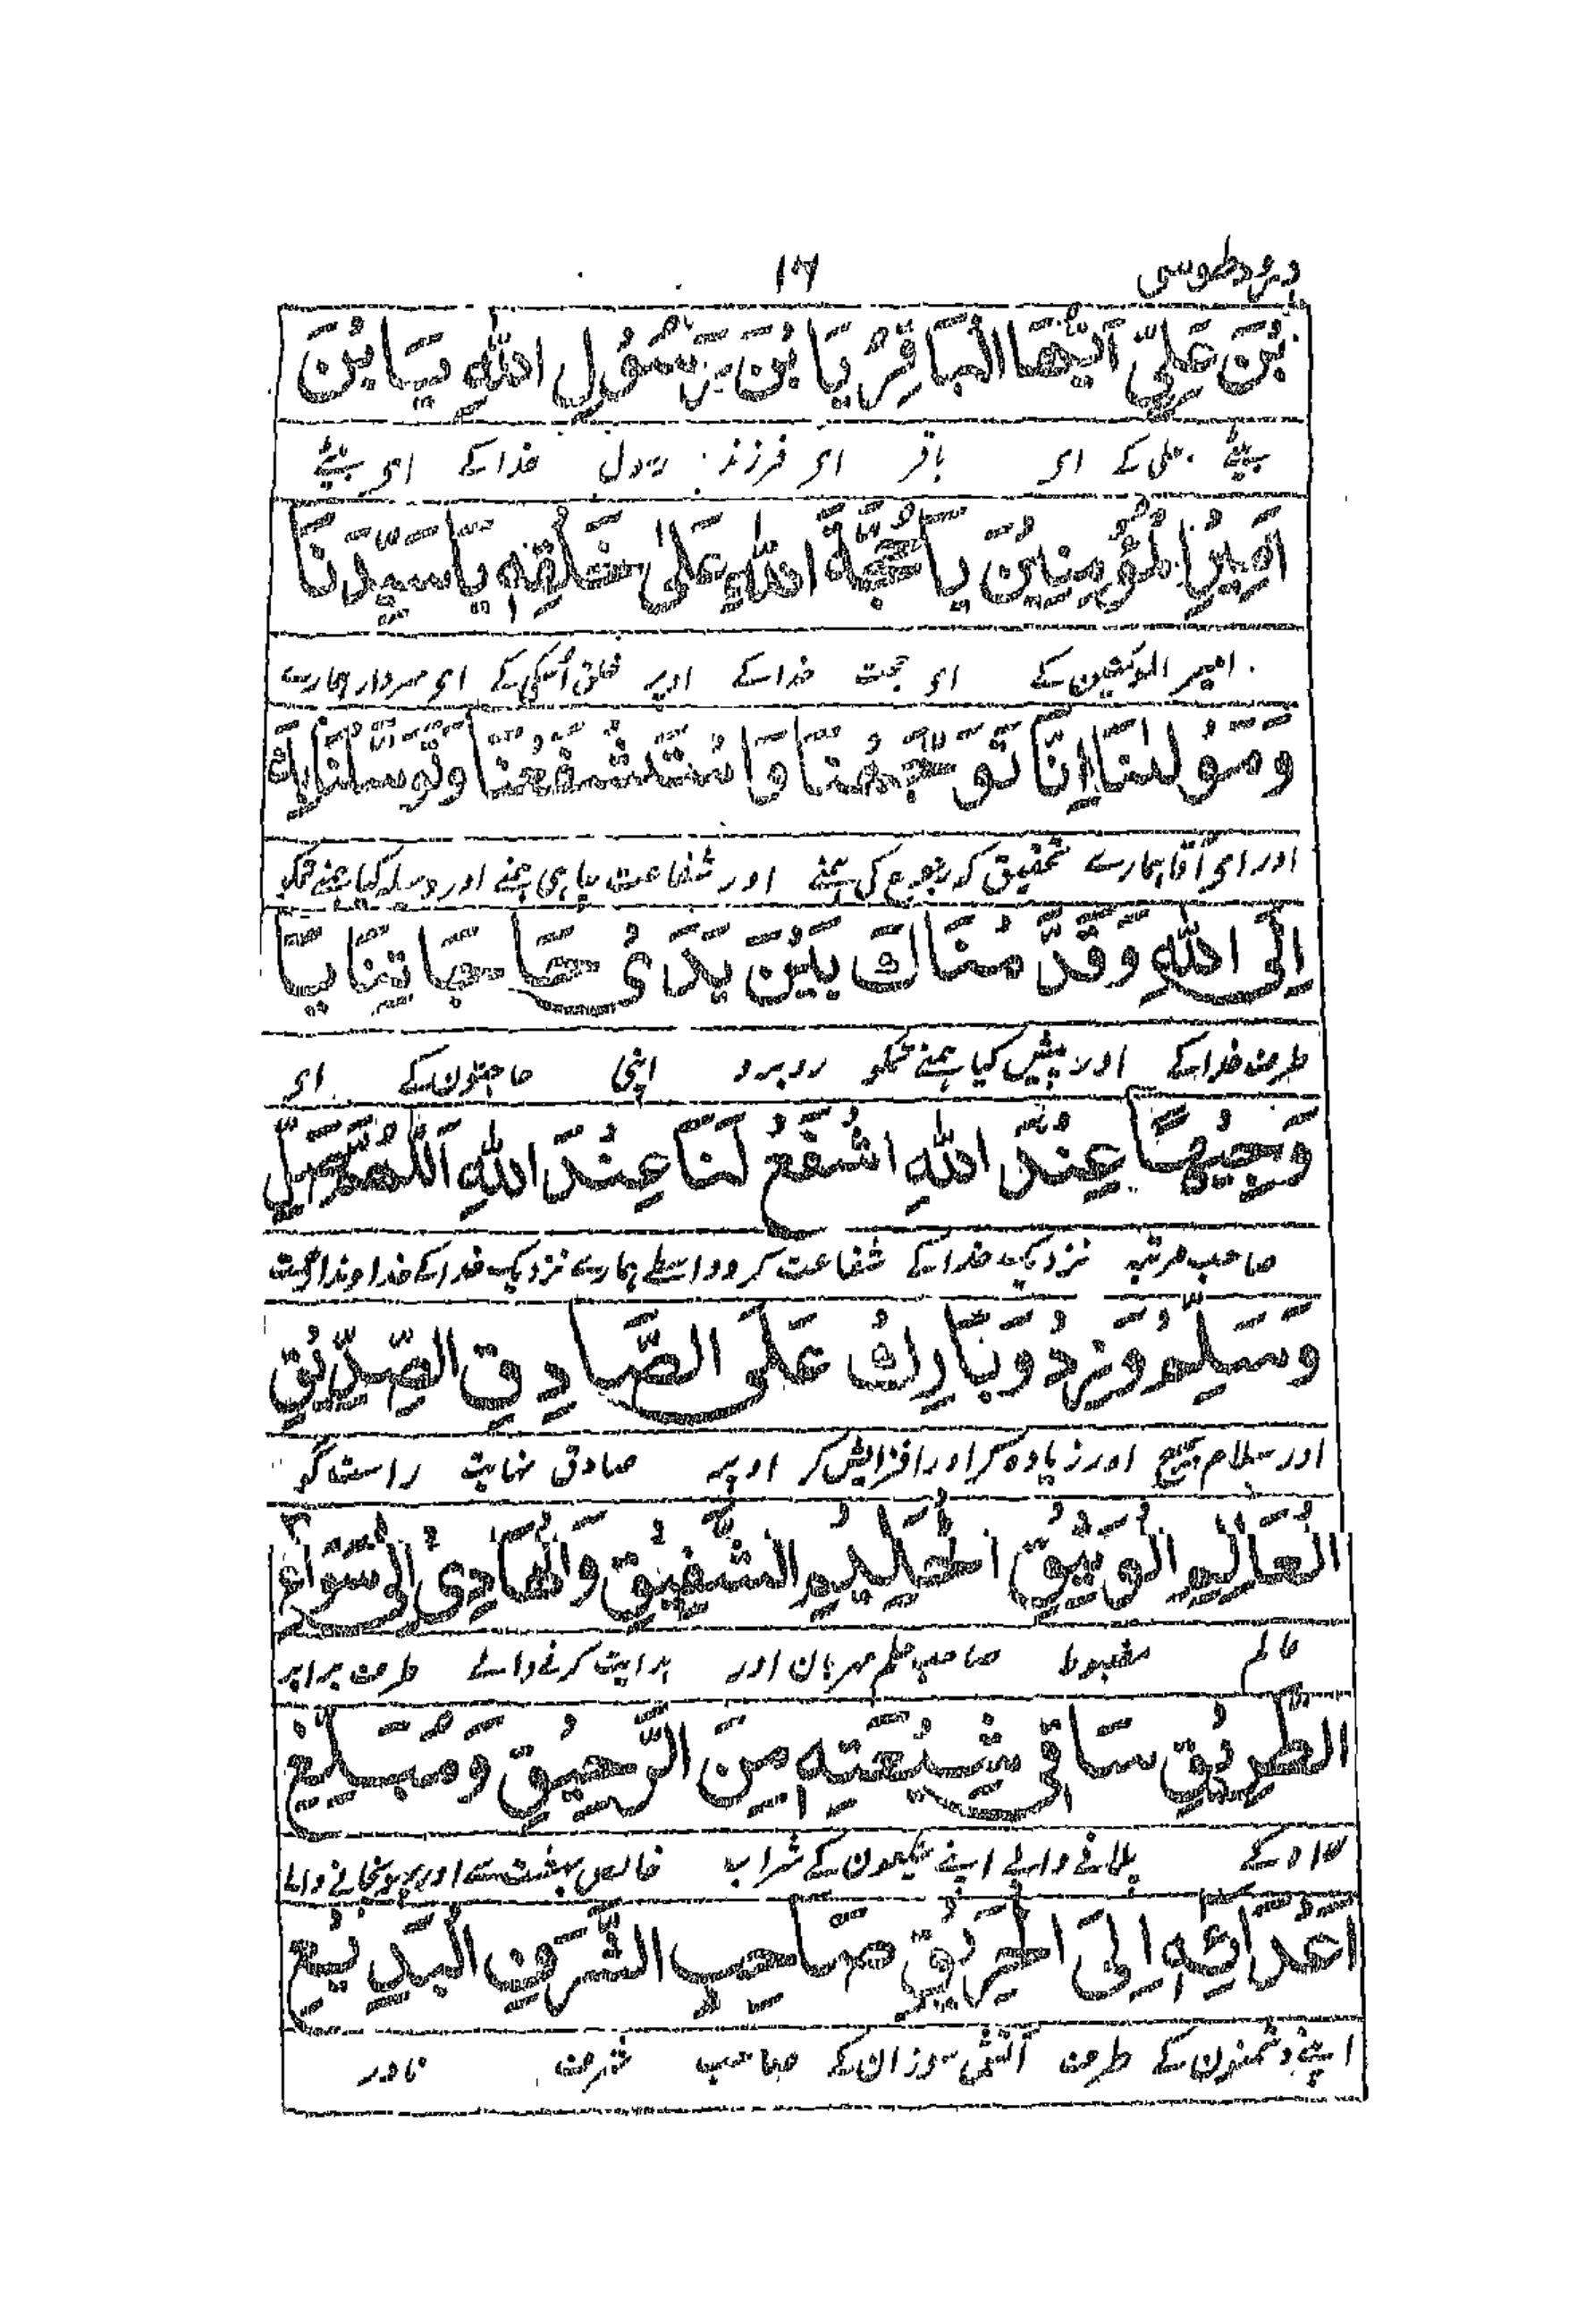 درود طوسی ۱۶
بْنَ عَلِیٍّ اَیُّهَا الْبَاقِرُ یَا بْنَ رَسُوْلِ اللّٰهِ یَا بْنَ
بیٹے علی کے ای باقر ای فرزند رسول خدا کے ای بیٹے
اَمِیْرِ الْمُؤْمِنِیْنَ یَا حُجَّةَ اللّٰهِ عَلٰی خَلْقِهٖ یَا سَیِّدَنَا
امیر المومنین کے ای حجت خدا کے اوپر خلق اُسکی کے ای سردار ہمارے
وَمَوْلٰنَا اِنَّا تَوَجَّهْنَا وَاسْتَشْفَعْنَا وَتَوَسَّلْنَا بِكَ
اور ای آقا ہمارے تحقیق کہ رجوع کی ہمنے اور شفاعت چاہی ہمنے اور وسیلہ کیا ہمنے تمکو
اِلَی اللّٰهِ وَقَدَّمْنَاكَ بَیْنَ یَدَیْ حَاجَاتِنَا یَا
طرف خدا کے اور پیش کیا ہمنے تمکو روبرو اپنی حاجتون کے ای
وَجِیْهًا عِنْدَ اللّٰهِ اشْفَعْ لَنَا عِنْدَ اللّٰهِ اَللّٰهُمَّ صَلِّ
صاحب مرتبہ نزدیک خدا کے شفاعت کرو واسطے ہمارے نزدیک خدا کے خداوندا رحمت
وَسَلِّمْ وَزِدْ وَبَارِكْ عَلَی الصَّادِقِ الصِّدِّیْقِ
اور سلام بھیج اور زیادہ کر اور افزایش کر اوپر صادق نہایت راست گو
الْعَالِمِ الْوَثِیْقِ الْحَلِیْمِ الشَّفِیْقِ وَالْهَادِیْ اِلٰی سَوَآءِ
عالم مضبوط صاحب حلم مہربان اور ہدایت کرنے والے طرف برابر
الطَّرِیْقِ سَاقِیْ شِیْعَتِهٖ مِنَ الرَّحِیْقِ وَمُبَلِّغِ
راہ کے پلانے والے اپنے شیعون کے شراب خالص بہشت سے اور پہونچانے والے
اَعْدَآئِهٖ اِلَی الْحَرِیْقِ صَاحِبِ الشَّرَفِ الْبَدِیْعِ
اپنے دشمنون کے طرف آتش سوزان کے صاحب شرف نادر